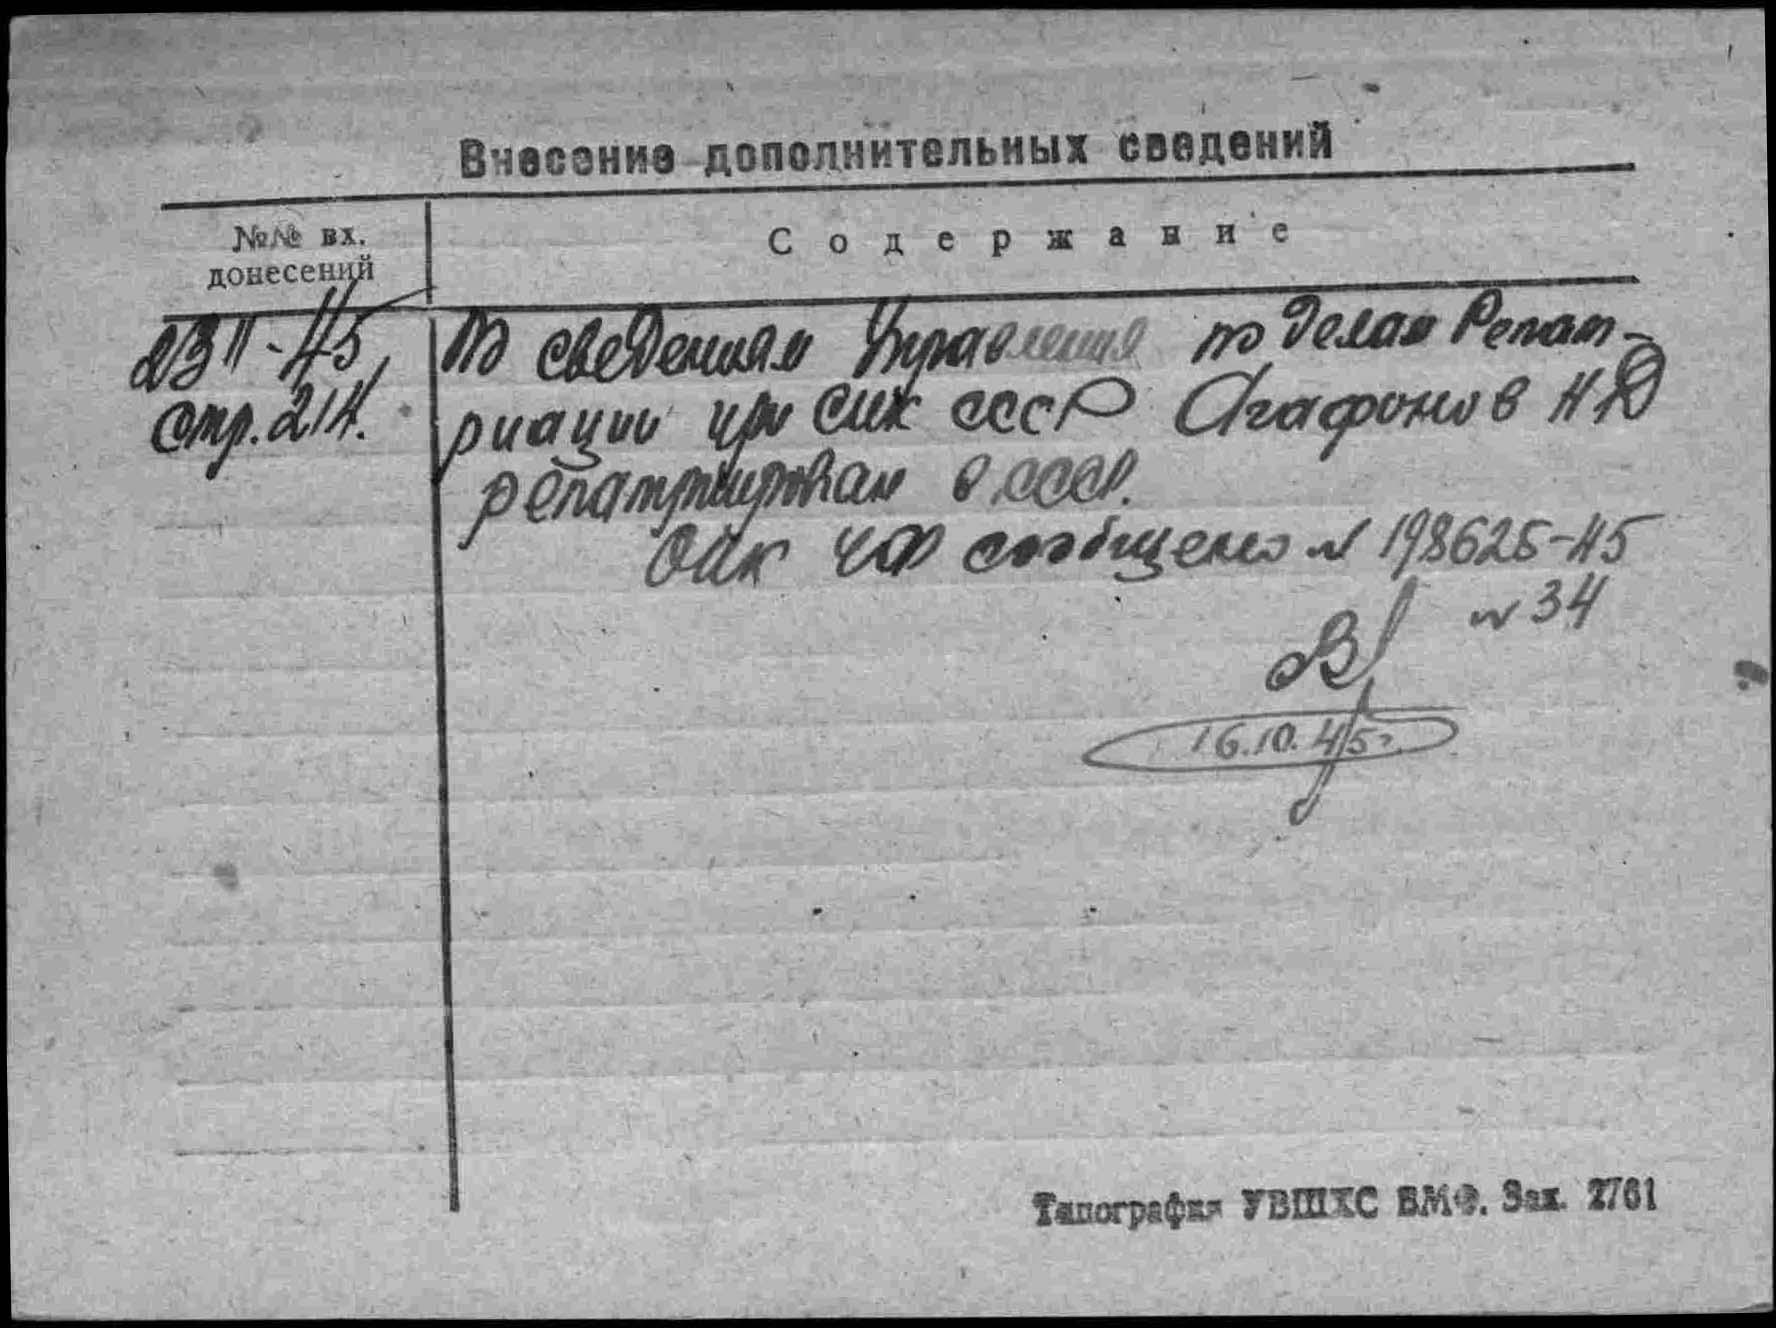 Внесение дополнительных сведений
№№ вх.
донесений
Содержание
23 II-45
стр. 214.
По сведениям Управления по делам Репат-
риации при СНК СССР Агафонов Н Д
репатриирован в СССР.
ОМК ЧФ сообщено № 198625-45
№ 34
16.10.45г.
Типография УВШХС ВМФ. Зак. 2761